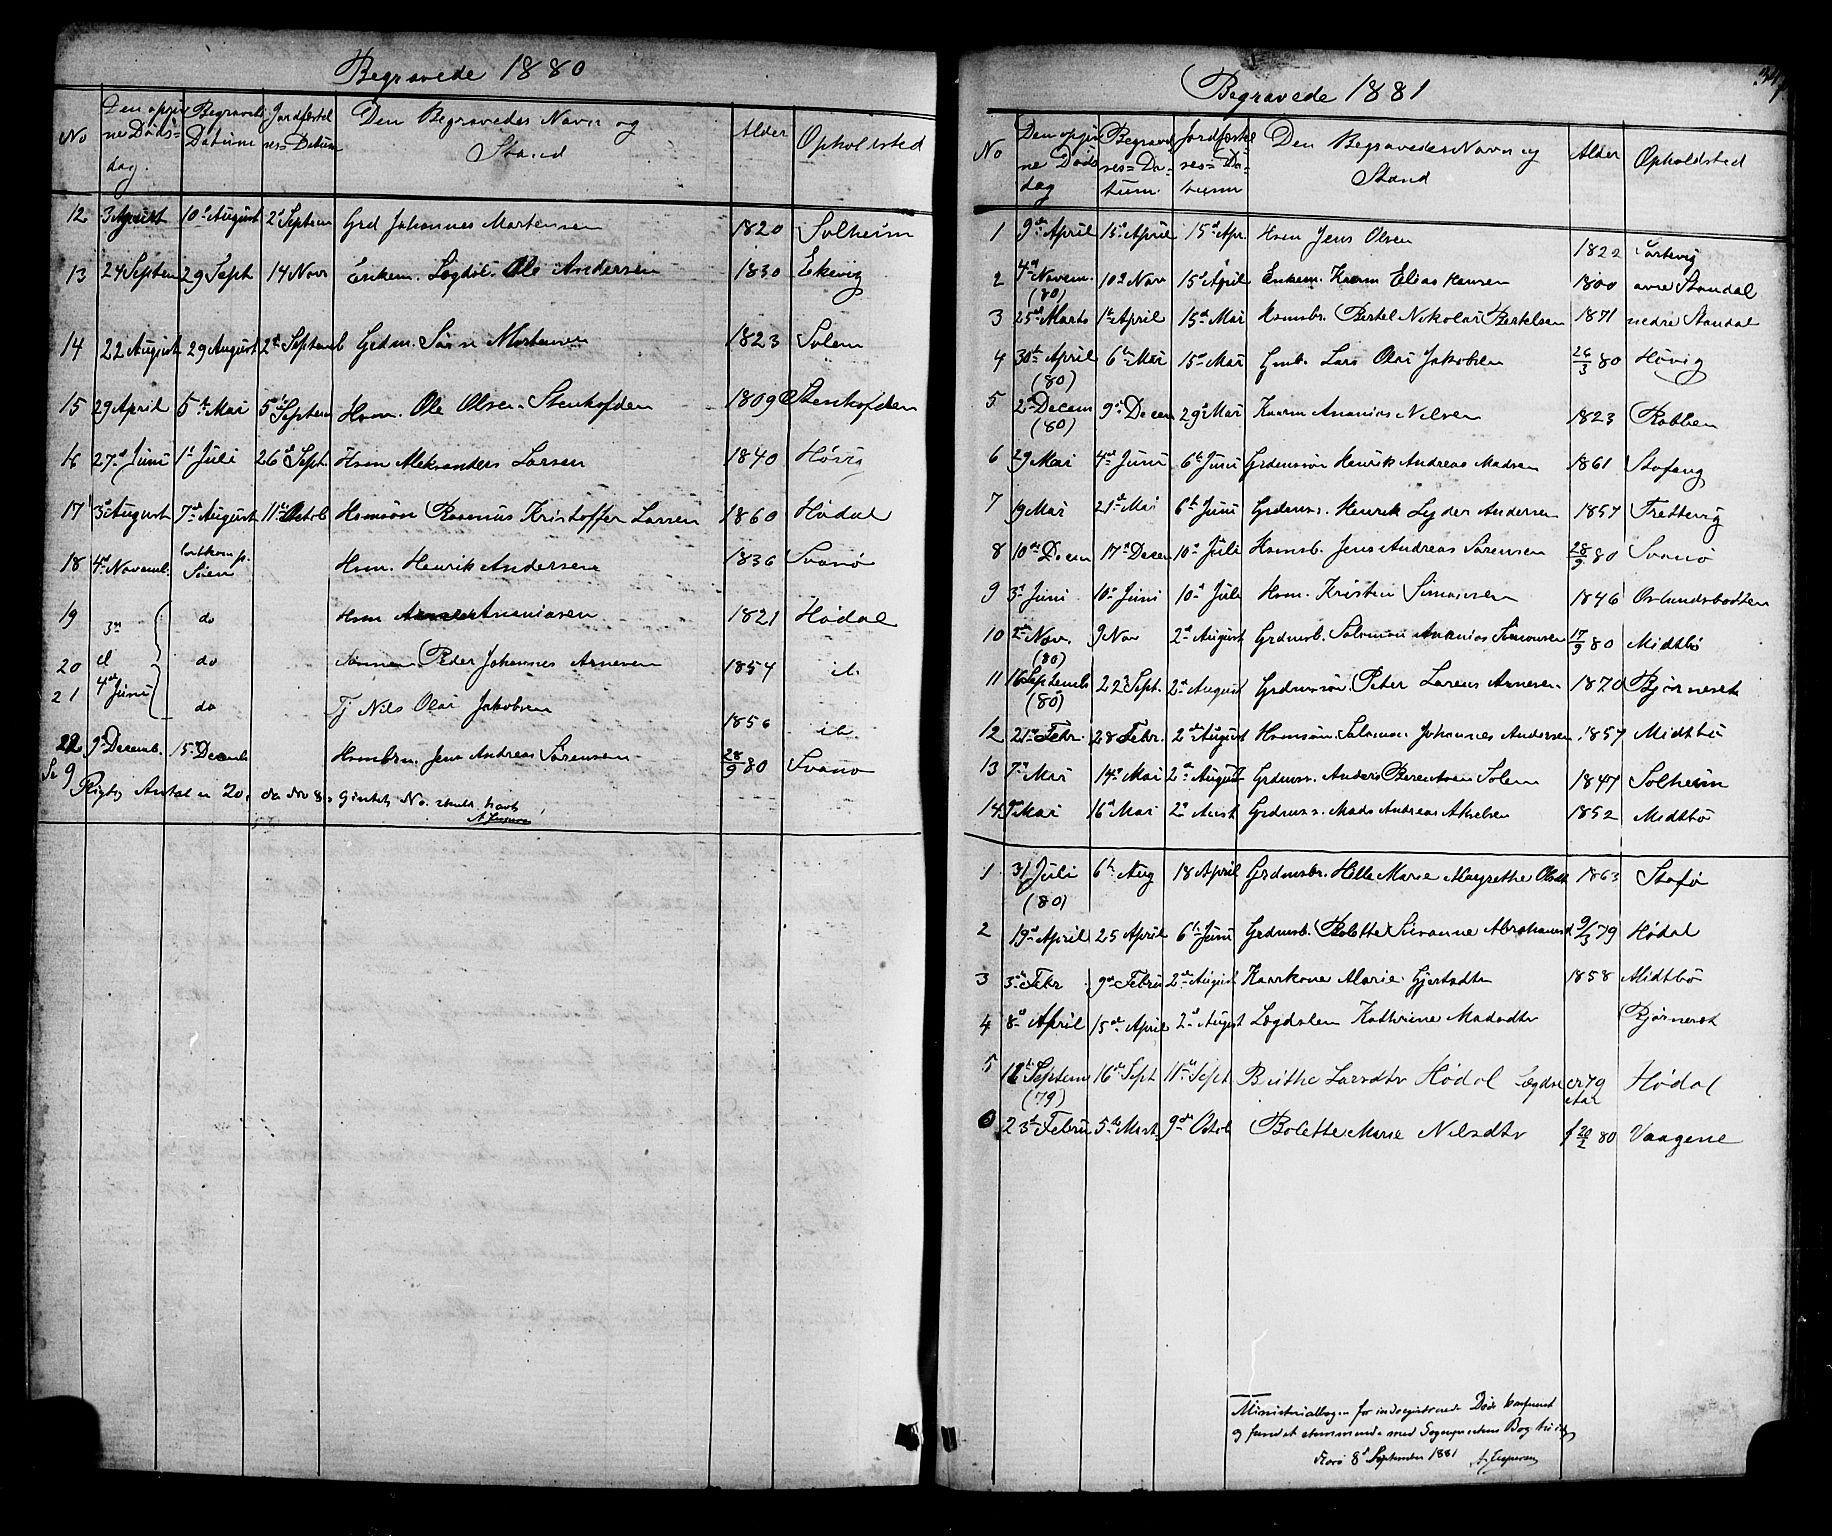 Begravede 1880
No | Den opgivne Døds=dag. | Begravels Datum | Jordfæstelses=Datum | Den Begravedes Navn og Stand | Alder | Opholdsted
12 | 3 August | 10d August | 2d Septem | Grd Johannes Mortensen | 1820 | Solheim
13 | 24 Septem | 29 Sept | 14 Nov | Enkem. Lægdsl. Ole Andersen | 1830 | Ekevig
14 | 22 August | 29 August | 2d Septemb | Grdm. Mortensen | 1823 | Solem
15 | 29 April | 5te Mai | 5te Septem | Hsm. Ole Olsen Stenhofden | 1809 | Stenhofden
16 | 27d Juni | 1d Juli | 26d Sept. | Hsm Aleksanders Larsen | 1840 | Høvig
17 | 3d August | 7d August | 11te Octob | Hsmsøn Rasmus Kristoffer Larsen | 1860 | Hødal
18 | 4d Novemb. | bortkom p. Søen | Hsm. Henrik Andersen | 1836 | Svanø
19 | 3die | do | Hsm Ananiasen | 1821 | Hødal
20 | el | do | Peder Johannes Arnesen | 1854 | ib.
21 | 4de Juni | do | Tj Nils Olai Jakobsen | 1856 | ib.
22 | 9d Decemb. | 15d Decemb | Hsmbrn. Jens Andreas Sørensen | 28/9 80 | Svanø
Se 9
Rigtig Antal er 20, da No 8. No. skulde havt
Begravede 1881
347
No | Den opgivne Døds dag | Begravelses=Datum | Jordfæstelses=Datum | Den Begravedes Navn og Stand | Alder | Opholdsted
1 | 9de April | 15d April | 15d Apr. | Hsm Jens Olsen | 1822
2 | 4d Novem. (80) | 10d Nov | 15d April | Enkem. Kaarm Elias Hansen | 1800 | øvre Standal
3 | 25d Marts | 1te April | 15d Mai | Hsmsbr. Bertel Nikolai Bertelsen | 1871 | nedre Standal
4 | 30te April (80) | 6te Mai | 15d Mai | Gmb. Lars Olai Jakobsen | 26/3 80 | Høvig
5 | 2d Decem (80) | 9d Decem | 29d Mai | Kaarm Ananias Nilsen | 1823 | Rabben
6 | 29 Mai | 4d Juni | 6te Juni | Grdmssøn Henrik Andreas Madsen | 1861 | Stafang
7 | 19 Mai | 21d Mai | 6te Juni | Grdmss. Henrik Lyder Andersen | 1857 | Frettevig
8 | 10de Decem | 17d Decem | 10d Juli | Hsmsb. Jens Andreas Sørensen | 28/9 80 | Svanø
9 | 3d Juni | 10d Juni | 10d Juli | Hsm. Kristen Simonsen | 1846 | Oslundsbotten
10 | 2de Nov. (80) | 9 Nov | 2d August | Grdmsb. Salomon Ananias Simonsen | 17/9 80 | Midtbø
11 | 16 Septemb (80) | 22 Sept. | 2d August | Grdmssøn. Peter Larens Arnesen | 1870 | Bjørneset
12 | 21d Febr. | 28 Febr. | 2d August | Hsmsøn. Salomon Johannes Andersen | 1857 | Midtbø
13 | 7de Mai | 14d Mai | 2d August | Grdmss. Anders Berentsen Solem | 1847 | Solheim
14 | 9d Mai | 16d Mai | 2d Aust | Grdmss. Mads Andreas Akselsen | 1852 | Midtbø
1 | 31 Juli (80) | 6te Aug | 18 April | Grdmsbr. Helle Marie Margrethe Olsdt | 1863 | Stafø
2 | 19d April | 25 April | 6te Juni | Grdmsb. Bolette Susanne Abrahamsd | 9/3 79 | Hødal
3 | 3die Febr | 9d Febru | 2d August | Kaarkone Marie Gjertsdtr | 1858 | Midtbø
4 | 8d April | 15de April | 2d August | Lægdslem Kathrine Madsdtr | Bjørneset
5 | 12te Septem (79) | 16de Sept | 11te Sept | Brithe Larsdtr Hødal Lægdsl | cr 79 etar | Hødal
6 | 23d Febru | 5te Mart. | 9de Octob | Bolette Marie Nilsdtr | f 20/2 80 | Vaagene
Ministerialbogen for indregistrerede Døde konfereret
og fundet stemmende med Sognepræstens Bog hvilket
8d September 1881 A. Jespersen